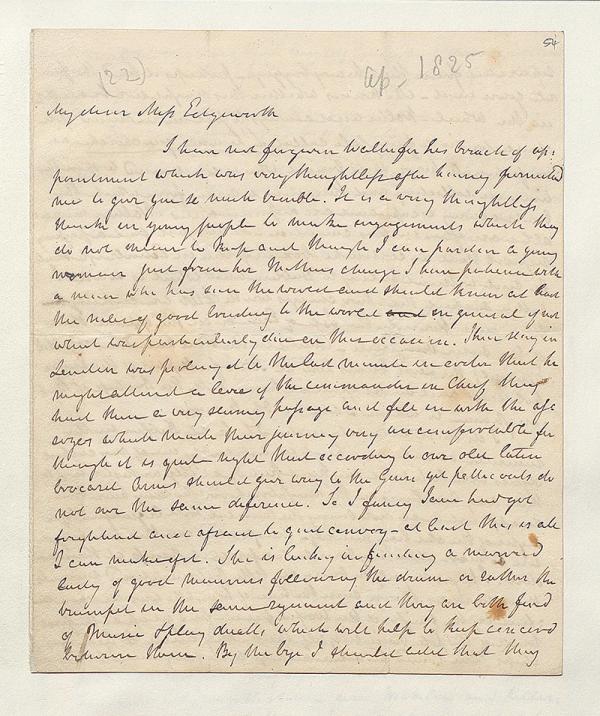 54
(22)
Ap. 1825
My dear Miss Edgeworth
I have not forgiven Walter for his breach of ap:
pointment which was very thoughtless after having permitted
me to give you so much trouble. It is a very thoughtless
in young people to make engagements which they
do not mean to keep and though I can pardon a young
woman just from her Mothers charge I have no patience with
a man who has seen the world and should know at least
the rules of good breeding to the world and in general if not
what was particularly due on this occasion. Their stay in
London was prolonged to the last minute in order that he
might attend a levee of the commander in Chief they
had then a very stormy passage and fell in with the
which made their journey very uncomfortable for
though it is quite right that according to our old latin
brocard Arms should give way to the Gown yet petticoats do
not owe the same deference. So I fancy Jane had got
frightend and afraid to quit convoy - at least this is all
I can make of it. She is lucky in finding a married
lady of good manners following the drum or rather the
trumpet in the same regiment and they are both fond
of Music & play duetts which will help to keep concord
between them. By the bye I should add that they